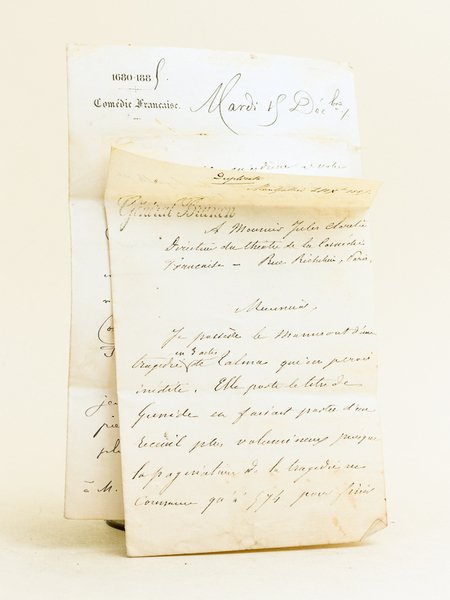 1680-1885
Comédie Française.
Mardi 15 Déc
Duplicata
Général Brunon
A Monsieur Jules Claretie
Directeur du théâtre de la Comédie
Française – Rue Richelieu, Paris.
Monsieur,
Je possède le manuscrit d'une
en 5 actes
tragédie de Talma qu'on pense
inédite. Elle porte le titre de
en faisant partie d'un
recueil plus volumineux puisque
la pagination de la tragédie ne
commence qu'à 574 pour finir
je
pie
pl
à M.